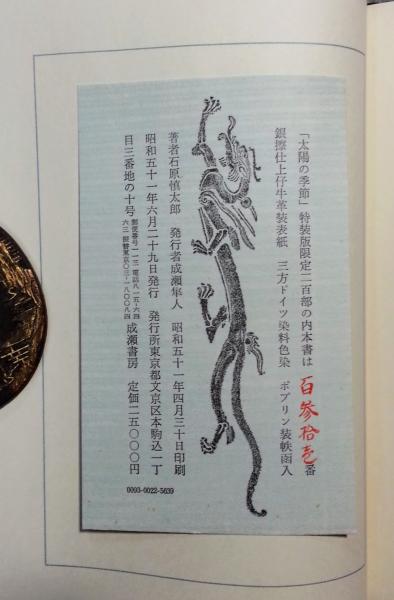 「太陽の季節」特装版限定二百部の内本書は百参拾壱番
銀擦仕上仔牛革装表紙　三方ドイツ染料色染　ポプリン装帙函入
著者石原慎太郎　発行者成瀬隼人　昭和五十一年四月三十日印刷
昭和五十一年六月二十九日発行　発行所東京都文京区本駒込一丁
目三番地の十号 郵便番号一一三 電話八一五・六四
六三 振替東京〇三・一八〇〇八四 成瀬書房　定価二五〇〇〇円
0093-0022-5639